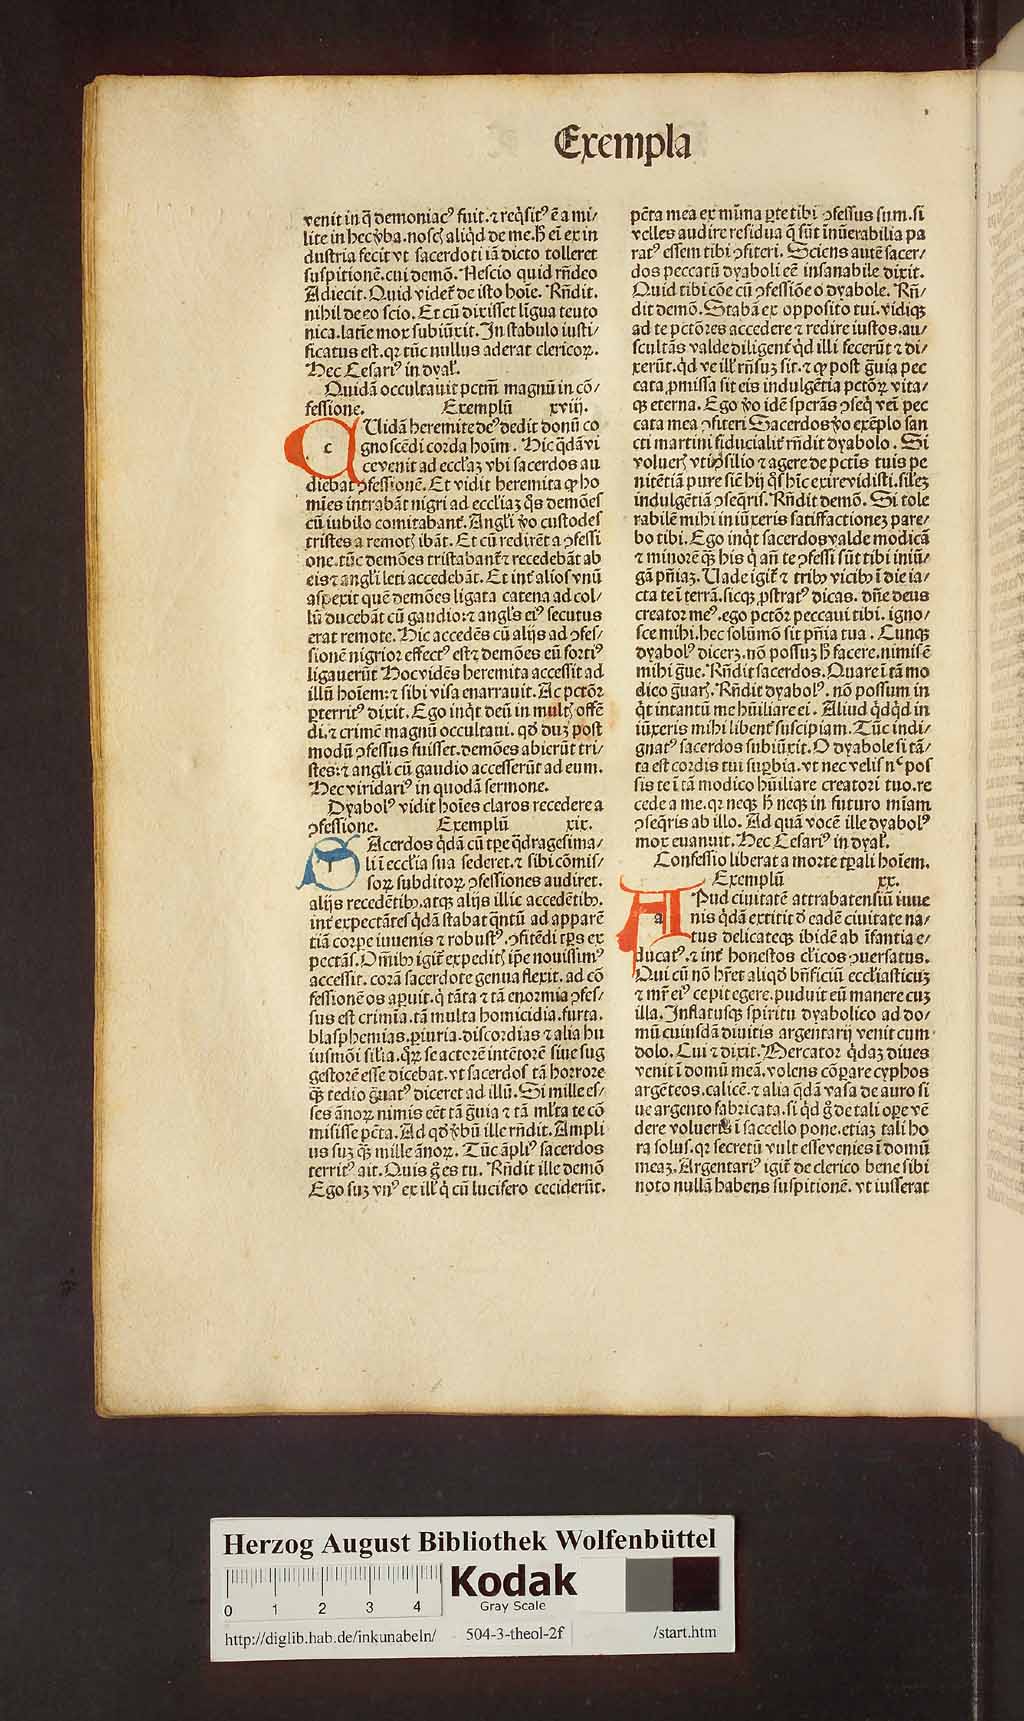 Exempla
venit in q̄ demoniacꝰ fuit. ⁊ reqͥsitꝰ ē a mi/
lite in hec v̾ba. noscꝭ aliqͥd de me. h̄ eī ex in
dustria fecit vt sacerdoti iā dicto tolleret
suspitionē. cui demō. Nescio quid rn̄deo
Adiecit. Quid videt᷑ de isto hoīe. Rn̄dit.
nihil de eo scio. Et cū dixisset lingua teuto
nica. latīe mox subiūxit. In stabulo iusti/
ficatus est. qꝛ tūc nullus aderat clericoꝝ.
Hec Cesariꝰ in dyal̓.
Quidā occultauit pctm̄ magnū in cō/
fessione. Exemplū xviij.
c Uidā heremite deꝰ dedit donū co
gnoscēdi corda hoīm. Hic qͥdā vi
ce venit ad eccl̓iaꝫ vbi sacerdos au
diebat ꝯfessionē. Et vidit heremita ꝙ ho
mīes intrabāt nigri ad eccl̓iaz qͦs demōes
cū iubilo comitabant᷑. Angl̓i v̾o custodes
tristes a remotꝭ ibāt. Et cū redirēt a ꝯfessi
one. tūc demōes tristabant᷑ ⁊ recedebāt ab
eis ⁊ angl̓i leti accedebāt. Et int̓ alios vnū
aspexit quē demōes ligata catena ad col/
lū ducebāt cū gaudio: ⁊ angl̓s eiꝰ secutus
erat remote. Hic accedēs cū alijs ad ꝯfes/
sionē nigrior effectꝰ est ⁊ demōes eū fortiꝰ
ligauerūt Hoc vidēs heremita accessit ad
illū hoīem: ⁊ sibi visa enarrauit. Ac pctōꝛ
ꝑterritꝰ dixit. Ego inqͥt deū in multꝭ offē
di. ⁊ crimē magnū occultaui. qd̓ duꝫ post
modū ꝯfessus fuisset. demōes abierūt tri/
stes: ⁊ angli cū gaudio accesserūt ad eum.
Hec viridariꝰ in quodā sermone.
Dyabolꝰ vidit hoīes claros recedere a
ꝯfessione. Exemplū xix.
S Acerdos qͥdā cū tꝑe qͣdragesima/
li ī eccl̓ia sua sederet. ⁊ sibi cōmis/
soꝝ subditoꝝ ꝯfessiones audiret.
alijs recedētibꝰ. atqꝫ alijs illic accedētibꝰ.
int̓ expectātes qͥdā stabat qͣntū ad apparē
tiā corꝑe iuuenis ⁊ robustꝰ. ꝯfitēdi tꝑs ex
pectās. Oīmibꝰ igit᷑ expeditꝭ ip̄e nouissimꝰ
accessit. corā sacerdote genua flexit. ad cō
fessionē os aꝑuit. qͥ tāta ⁊ tā enormia ꝯfes/
sus est crimīa. tā multa homicidia. furta.
blasphemias. ꝑiuria. discordias ⁊ alia hu
iusmōi sil̓ia. qͦꝝ se actorē intētorē siue sug
gestorē esse dicebat. vt sacerdos tā horrore
qͣꝫ tedio gͣuatꝰ diceret ad illū. Si mille es/
ses ānoꝝ nimis eēt tā gͣuia ⁊ tā ml̓ta te cō
misisse pctā. Ad qd̓ v̾bū ille rn̄dit. Ampli
us suꝫ qͣꝫ mille ānoꝝ. Tūc ampliꝰ sacerdos
territꝰ ait. Quis gͦ es tu. Rn̄dit ille demō
Ego suꝫ vnꝰ ex ill̓ qͥ cū lucifero ceciderūt.
pctā mea ex mīma ꝑte tibi ꝯfessus sum. si
velles audire residua q̄ sūt īnūerabilia pa
ratꝰ essem tibi ꝯfiteri. Sciens autē sacer/
dos peccatū dyaboli eē insanabile dixit.
Quid tibi cōe cū ꝯfessiōe o dyabole. Rn̄/
dit demō. Stabā ex opposito tui. vidiqꝫ
ad te pctōres accedere ⁊ redire iustos. au/
scultās valde diligent᷑ qͥd illi fecerūt ⁊ di/
xerūt. qͥd ve ill̓ rn̄suꝫ sit. ⁊ ꝙ post gͣuia pec
cata ꝓmissa sit eis indulgētia pctōꝝ vita/
qꝫ eterna. Ego v̾o idē sperās ꝯseqͥ vei pec
cata mea ꝯfiteri Sacerdos v̾o exēplo san
cti martini fiducialit᷑ rn̄dit dyabolo. Si
volueꝭ vti ꝯsilio ⁊ agere de pctīs tuis pe
nitētiā pure sic̄ hij qͦs hīc exire vidisti. sil̓eꝫ
indulgētiā ꝯseqͥris. Rn̄dit demō. Si tole
rabilē mihi iniūxeris satisfactionez pare/
bo tibi. Ego inqͥt sacerdos valde modicā
⁊ minorē qͣꝫ his qͥ an̄ te ꝯfessi sūt tibi iniū/
gā pn̄iaꝫ. Uade igit᷑ ⁊ tribꝰ vicibꝰ ī die ia/
cta te ī terrā. sicqꝫ ꝓstratꝰ dicas. dn̄e deus
creator meꝰ. ego pctōꝛ peccaui tibi. igno/
sce mihi. hec solūmō sit pn̄ia tua. Cunqꝫ
dyabolꝰ dicerꝫ. nō possuꝫ h̄ facere. nimis ē
mihi gͣue. Rn̄dit sacerdos. Quare ī tā mo
dico gͣuarꝭ. Rn̄dit dyabolꝰ. nō possum in
qͥt intantū me hūiliare ei. Aliud qͥdqͥd in
iūxeris mihi libent᷑ suscipiam. Tūc indi/
gnatꝰ sacerdos subiūxit. O dyabole si tā/
ta est cordis tui suꝑbia. vt nec velis nᶜ pos
sis te ī tā modico hūiliare creatori tuo. re
cede a me. qꝛ neqꝫ h̄ neqꝫ in futuro mīam
ꝯseqͥris ab illo. Ad quā vocē ille dyabolꝰ
mox euanuit. Hec Cesariꝰ in dyal̓.
Confessio liberat a morte tꝑali hoīem.
Exemplū xx.
a Pud ciuitatē attrabatensiū iuue
nis qͥdā extitit d̓ eadē ciuitate na/
tus delicateqꝫ ibidē ab īfantia e/
ducatꝰ. ⁊ int̓ honestos cl̓icos ꝯuersatus.
Qui cū nō hr̄et aliqd̓ bn̄ficiū eccl̓iasticuꝫ
⁊ mr̄ eiꝰ cepit egere. puduit eū manere cuꝫ
illa. Inflatusqꝫ spiritu dyabolico ad do/
mū cuiusdā diuitis argentarij venit cum
dolo. Cui ⁊ dixit. Mercator qͥdaꝫ diues
venit ī domū meā. volens cōꝑare cyphos
argēteos. calicē. ⁊ alia qͣdā vasa de auro si
ue argento fabricata. si qͥd gͦ de tali oꝑe vē
dere volueris ī saccello pone. etiaꝫ tali ho
ra solus. qꝛ secretū vult esse venies ī domū
meaꝫ. Argentariꝰ igit᷑ de clerico bene sibi
noto nullā habens suspitionē. vt iusserat
Herzog August Bibliothek Wolfenbüttel
0 1 2 3 4
Kodak
Gray Scale
http://diglib.hab.de/inkunabeln/ 504-3-theol-2f /start.htm